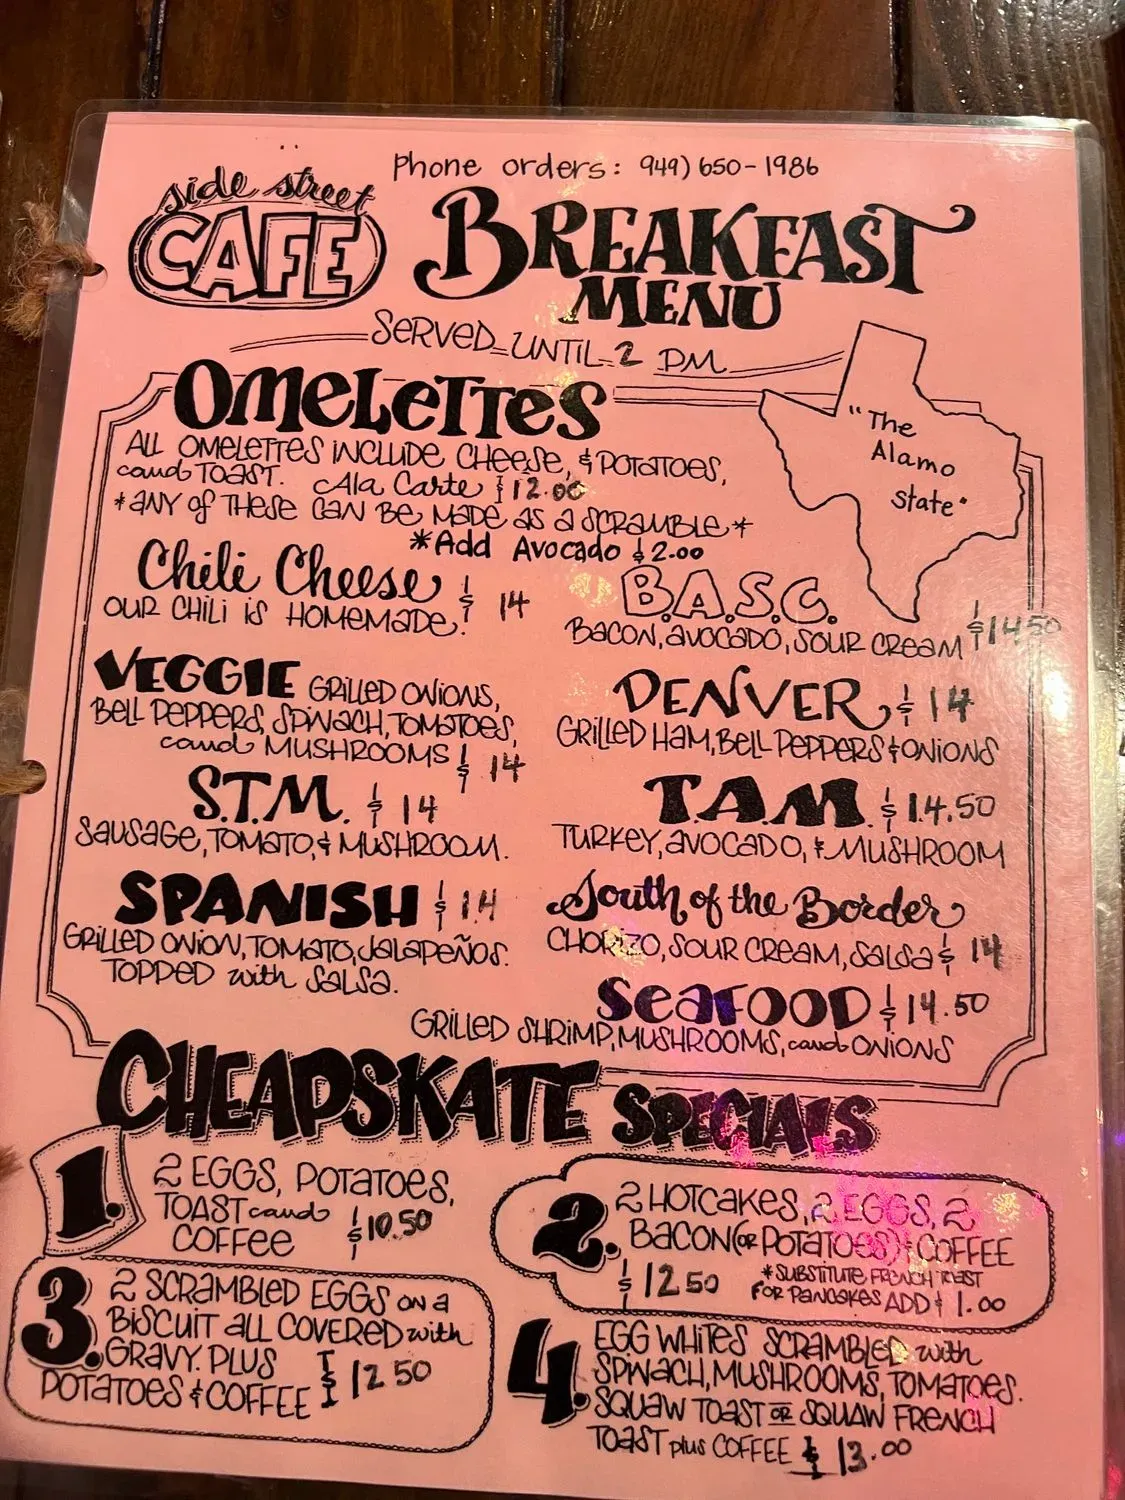 Phone orders: 949) 650-1986
side street
CAFE
BREAKFAST
MENU
SERVED UNTIL 2 PM
OMELETTES
"The
Alamo
State"
ALL OMELETTES INCLUDE CHEESE, & POTATOES,
and TOAST. Ala Carte $12.00
*ANY OF THESE CAN BE MADE AS A SCRAMBLE*
*Add Avocado $2.00
Chili Cheese $14
OUR CHILI IS HOMEMADE!
B.A.S.C.
BACON, AVOCADO, SOUR CREAM $14.50
VEGGIE GRILLED ONIONS,
BELL PEPPERS, SPINACH, TOMATOES,
and MUSHROOMS $14
DENVER $14
GRILLED HAM, BELL PEPPERS & ONIONS
S.T.M. $14
SAUSAGE, TOMATO, & MUSHROOM.
T.A.M. $14.50
TURKEY, AVOCADO, & MUSHROOM
SPANISH $14
GRILLED ONION, TOMATO, JALAPEÑOS.
TOPPED with SALSA.
South of the Border
CHORIZO, SOUR CREAM, SALSA $14
SEAFOOD $14.50
GRILLED SHRIMP, MUSHROOMS, and ONIONS
CHEAPSKATE SPECIALS
1. 2 EGGS, POTATOES,
TOAST and
COFFEE $10.50
2. 2 HOTCAKES, 2 EGGS, 2
BACON (OR POTATOES) & COFFEE
$12.50 *SUBSTITUTE FRENCH TOAST
FOR PANCAKES ADD $1.00
3. 2 SCRAMBLED EGGS ON A
BISCUIT ALL COVERED with
GRAVY. PLUS
POTATOES & COFFEE $12.50
4. EGG WHITES SCRAMBLED with
SPINACH, MUSHROOMS, TOMATOES.
SQUAW TOAST OR SQUAW FRENCH
TOAST plus COFFEE $13.00